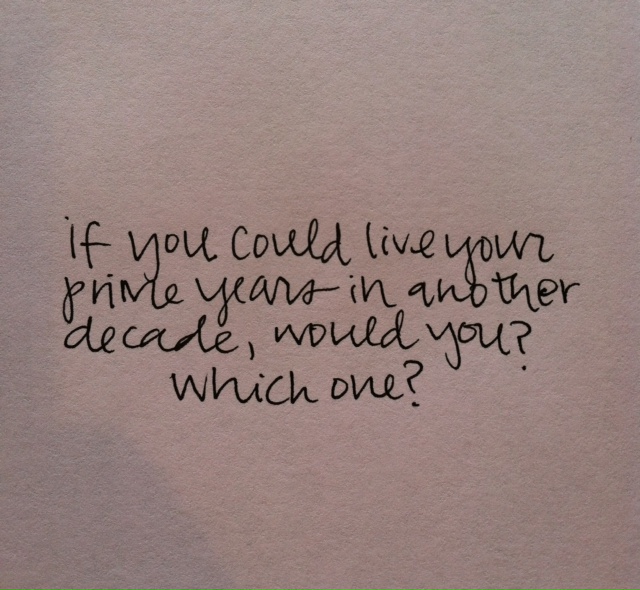 if you could live your
prime years in another
decade, would you?
which one?